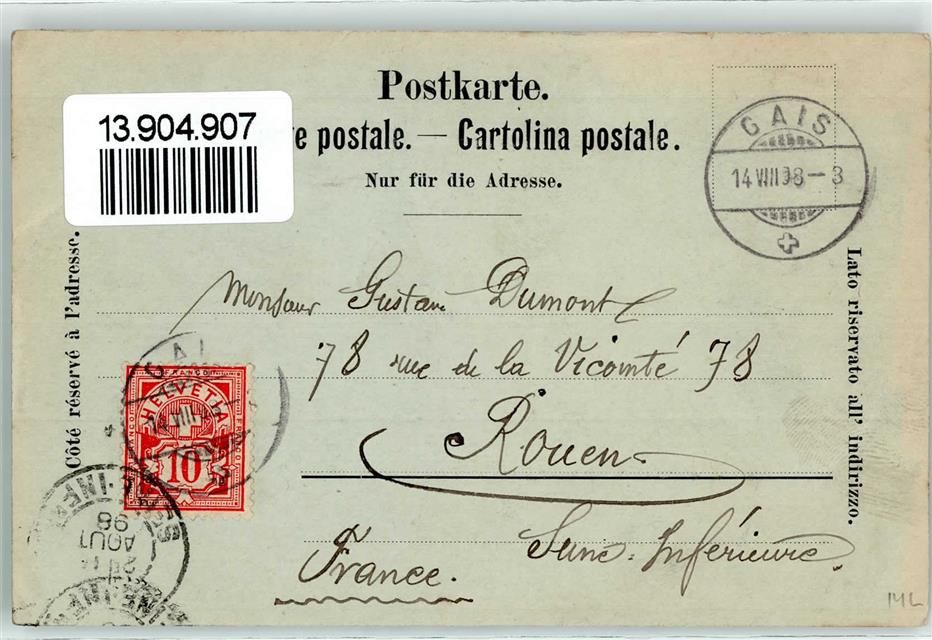 Postkarte.
13.904.907
e postale. — Cartolina postale.
Nur für die Adresse.
GAIS
14 VIII 98 – 3
Côté réservé à l'adresse.
Lato riservato all' indirizzo.
Monsieur Gustave Dumont
78 rue de la Vicomté 78
Rouen
Seine-Inférieure
France.
FRANCO
HELVETIA
10
AOUT
98